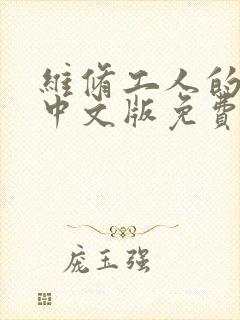 維脩工人的
中文版免費
庞玉强